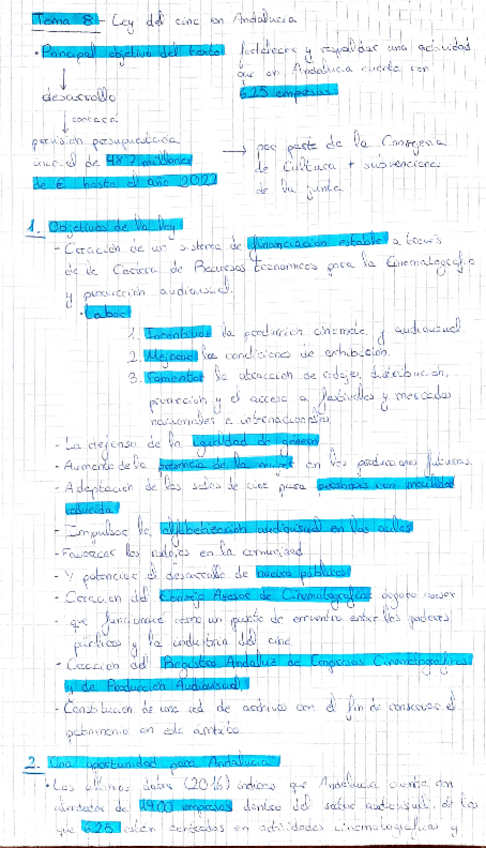 Tema 8 - Ley del cine en Andalucía
• Principal objetivo del texto fortalecer y respaldar una actividad
que en Andalucía cuenta con
625 empresas
desarrollo
contará
previsión presupuestaria
inicial de 48'2 millones
de € hasta el año 2021
→ por parte de la Consejería
de Cultura + subvenciones
de la junta
1. Objetivos de la ley
- Creación de un sistema de financiación estable a través
de la de Recursos Económicos para la Cinematografía
y producción audiovisual.
• Labor
1. Incentivar la producción cinemato. y audiovisual
2. Mejorar las condiciones de exhibición.
3. Fomentar la atracción de rodajes, distribución,
promoción y el acceso a festivales y mercados
nacionales e internacionales
- La defensa de la igualdad de género
- Aumento de la presencia de la mujer en las producciones futuras.
- Adaptación de las salas de cine para personas con movilidad
reducida
- Impulsar la alfabetización audiovisual en las aulas
- Favorecer los rodajes en la comunidad
- Y potenciar el desarrollo de nuevos públicos
- Creación del Consejo Asesor de Cinematografía órgano asesor
- que funcionará como un punto de encuentro entre los poderes
públicos y la industria del cine
- Creación del Registro Andaluz de Empresas Cinematográficas
y de Producción Audiovisual
- Constitución de una red de archivos con el fin de conservar el
patrimonio en este ámbito
2. Una oportunidad para Andalucía
• Los últimos datos (2016) indican que Andalucía cuenta con
alrededor de 1900 empresas dentro del sector audiovisual, de las
que 625 están centradas en actividades cinematográficas y